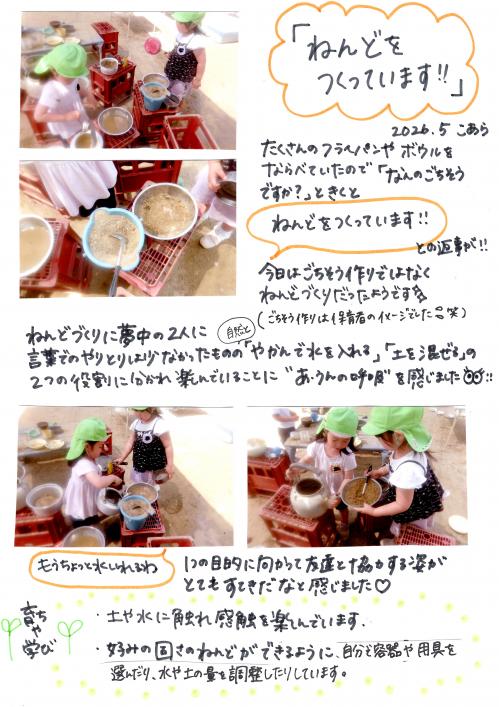 「ねんどを
つくっています!!」
2026.5 こあら
たくさんのフライパンや ボウルを
ならべていたので「なんのごちそう
ですか?」ときくと
ねんどをつくっています!!
との返事が!!
今日はごちそう作りではなく
ねんどづくりだったようです
(ごちそう作りは保育者のイメージでした 笑)
ねんどづくりに夢中の2人に
言葉でのやりとりは少なかったものの 自然と「やかんで水を入れる」「土を混ぜる」の
2つの役割に分かれ 楽んでいることに "あ・うんの呼吸"を感じました!!
もうちょっと水いれるわ
1つの目的に向かって友達と協力する姿が
とてもすてきだなと感じました♡
育ちや学び
・土や水に触れ感触を楽しんでいます.
・好みの固さのねんどができるように、自分で容器や用具を
選んだり、水や土の量を調整したりしています。